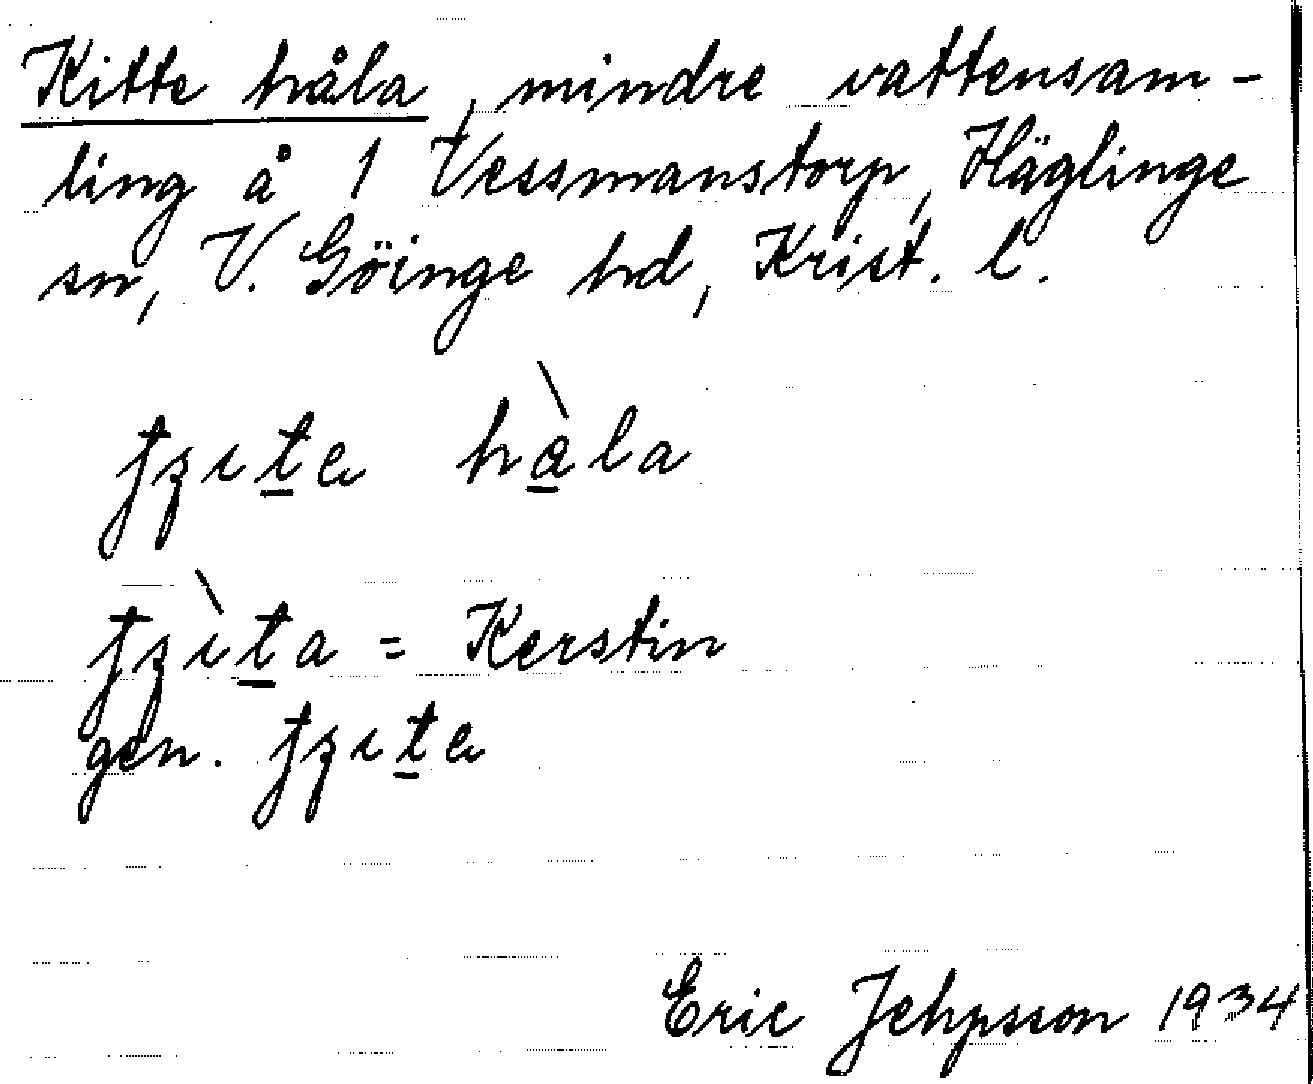 Kitte håla, mindre vattensam-
ling å 1 Vessmanstorp, Häglinge
sn, V. Göinge hd, Krist. l.
ʈʒıte hàla
ʈʒìta = Kerstin
gen. ʈʒıte
Eric Jehpsson 1934